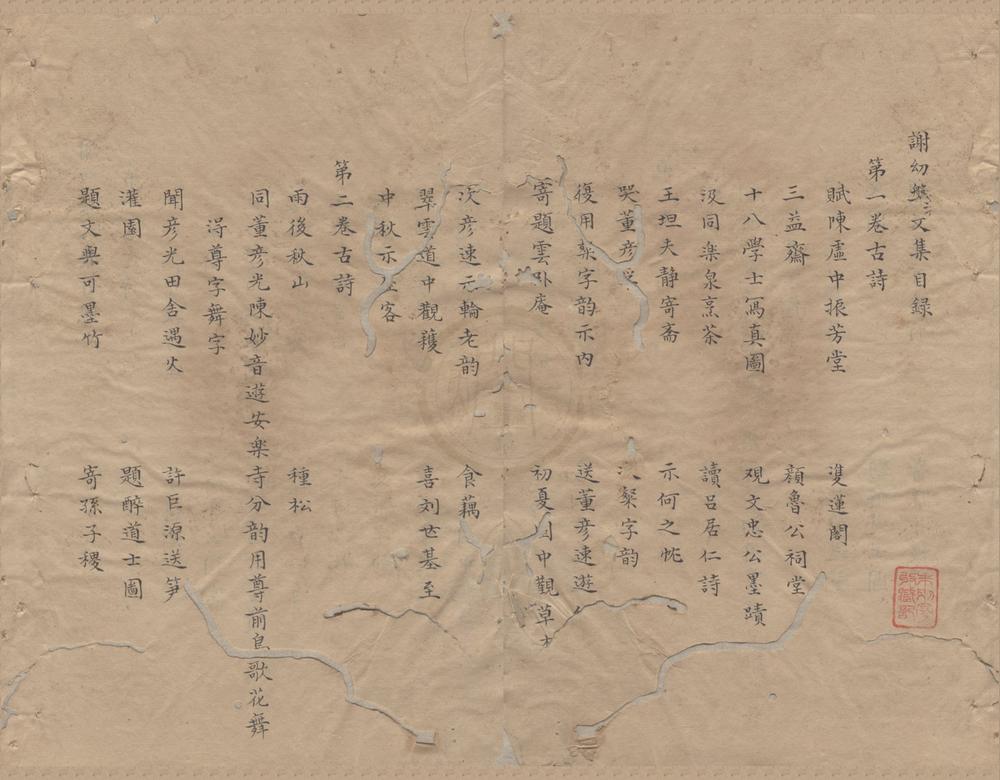 謝幼槃文集目録
第一卷古詩
賦陳虛中振芳堂 雙蓮閣
三益齋 顔魯公祠堂
十八學士寫真圖 观文忠公墨蹟
汲同楽泉烹茶 讀呂居仁詩
王坦夫静寄斋 示何之忱
哭董彦 粲字韵
復用粲字韵示内 送董彦速遊
寄題雲卧庵 初夏 中觀草
次彦速元輪老韵 食藕
翠雲道中觀穫 喜刘世基至
中秋示 客
第二卷古詩
雨後秋山 種松
同董彦光陳妙音遊安楽寺分韵用尊前鳥歌花舞
得尊字舞字
聞彦光田舎遇火 許巨源送笋
灌園 題醉道士圖
題文與可墨竹 寄孫子稷